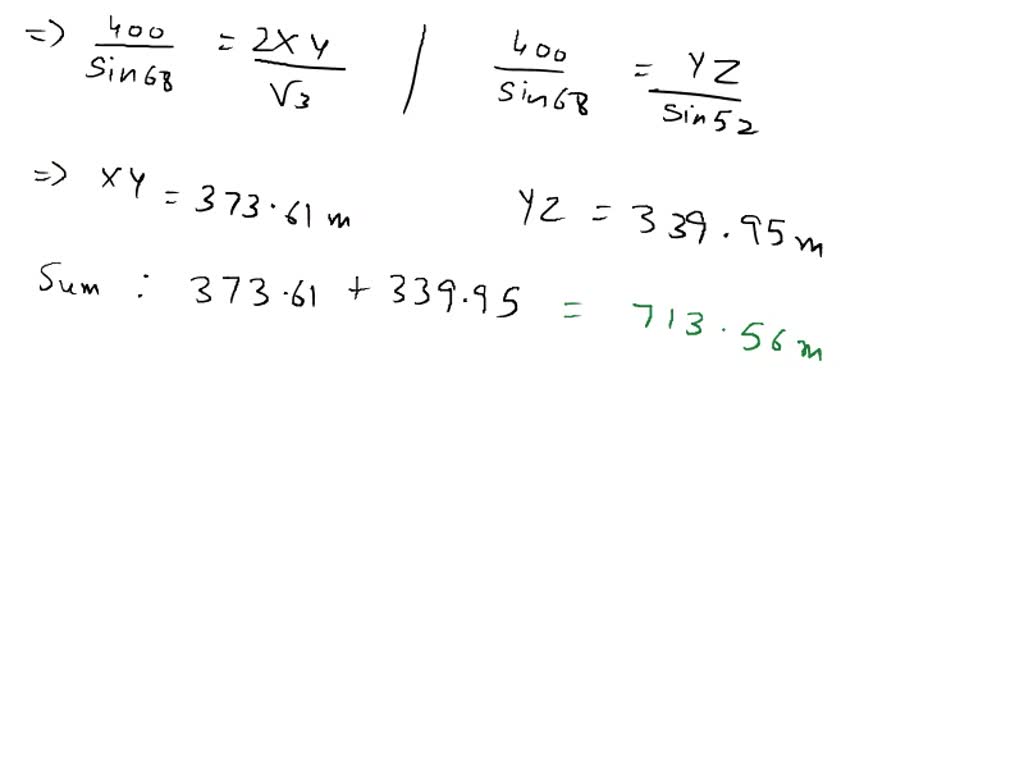 => 400/Sin68 = 2XY/√3 / 400/Sin68 = YZ/Sin52
=> XY = 373.61 m YZ = 339.95 m
Sum : 373.61 + 339.95 = 713.56 m